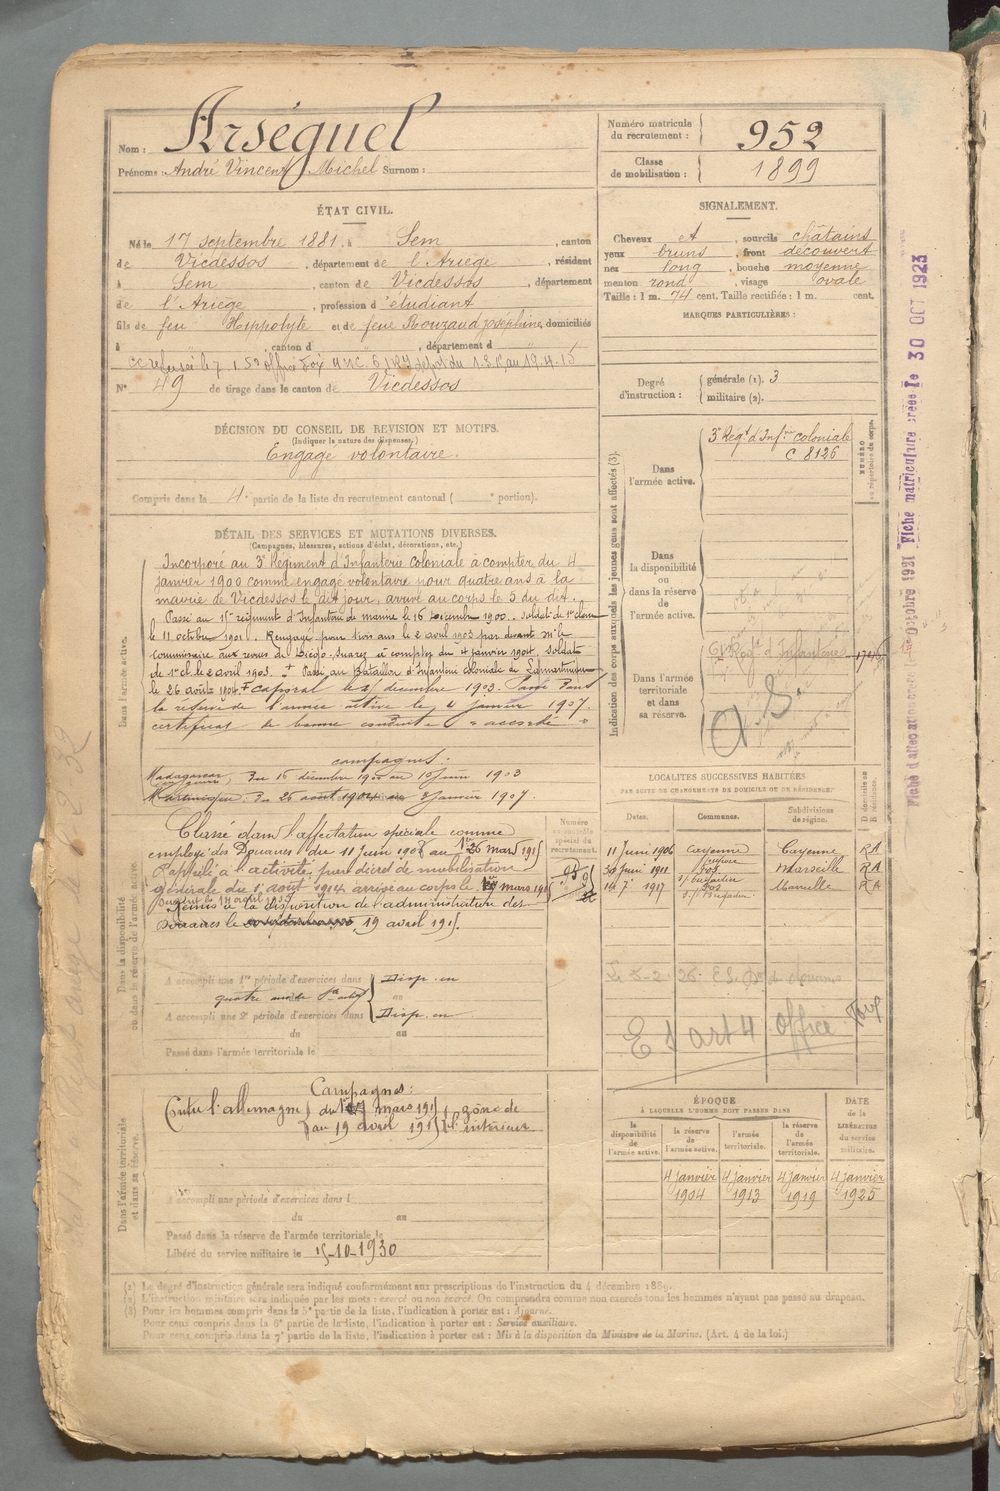 Nom : Arséguel
Prénoms : André Vincent Michel Surnom :
Numéro matricule du recrutement : 952
Classe de mobilisation : 1899
ÉTAT CIVIL.
Né le 17 septembre 1881, à Sem, canton
de Vicdessos, département de l'Ariège, résidant
à Sem, canton de Vicdessos, département
de l'Ariège, profession d'étudiant
fils de feu Hippolyte et de feue Rouzaud Joséphine, domiciliés
à , canton d , département d
N° 49 de tirage dans le canton de Vicdessos
SIGNALEMENT.
Cheveux et , sourcils châtains
yeux bruns, front découvert
nez long, bouche moyenne
menton rond, visage ovale
Taille : 1 m. 74 cent. Taille rectifiée : 1 m. cent.
MARQUES PARTICULIÈRES :
Degré d'instruction : générale (1). 3
militaire (2).
DÉCISION DU CONSEIL DE REVISION ET MOTIFS.
(Indiquer la nature des dispenses.)
Engagé volontaire.
Compris dans la 4e partie de la liste du recrutement cantonal ( e portion).
DÉTAIL DES SERVICES ET MUTATIONS DIVERSES.
(Campagnes, blessures, actions d'éclat, décorations, etc.)
Dans l'armée active.
Incorporé au 3e Régiment d'Infanterie Coloniale à compter du 4
janvier 1900 comme engagé volontaire pour quatre ans à la
mairie de Vicdessos le dit jour, arrivé au corps le 5 du dit.
Passé au régiment d'Infanterie de marine le 16 décembre 1900. Soldat de 1re classe
le 11 octobre 1901. Rengagé pour trois ans le 2 avril 1903 par devant Mr le
commissaire aux revues de Diégo-Suarez à compter du 4 janvier 1904, soldat
de 1re cl. le 2 avril 1903. Passé au Bataillon d'Infanterie coloniale de La Martinique
le 26 août 1904. caporal le décembre 1903. Passé dans
la réserve de l'armée active le 4 janvier 1907.
certificat de bonne conduite "accordé"
campagnes :
Madagascar, du 16 décembre 1900 au 10 Juin 1903
Martinique. du 26 août 1904 au janvier 1907.
Dans la disponibilité ou dans la réserve de l'armée active.
Classé dans l'affectation spéciale comme
employé des Douanes du 11 Juin 1908 au mars 1915
Rappelé à l'activité par décret de mobilisation
générale du 1er août 1914 arrivé au corps le mars 1915
Remis à la disposition de l'administration des
Douanes le 19 avril 1915.
Numéro au contrôle spécial du recrutement.
A accompli une 1re période d'exercices dans Disp. en
A accompli une 2e période d'exercices dans Disp. en
du au
Passé dans l'armée territoriale le
Dans l'armée territoriale et dans sa réserve.
Campagnes :
Contre l'allemagne du mars 1915 zone de
au 19 avril 1915 l'intérieur
A accompli une période d'exercices dans l
du au
Passé dans la réserve de l'armée territoriale le
Libéré du service militaire le 15-10-1930
Indication des corps auxquels les jeunes gens sont affectés (3).
Dans l'armée active. 3e Régt d'Infrie coloniale
C 8126
NUMÉRO au répertoire du corps.
Dans la disponibilité ou dans la réserve de l'armée active.
Dans l'armée territoriale et dans sa réserve.
Régt d'Infanterie
LOCALITÉS SUCCESSIVES HABITÉES
PAR SUITE DE CHANGEMENTS DE DOMICILE OU DE RÉSIDENCE.
Dates. Communes. Subdivisions de région. D domicile ou R résidence.
11 Juin 1906 Cayenne Cayenne RA
Juin 1911 Marseille RA
1917 Marseille RA
E 1 art 4 office
ÉPOQUE
À LAQUELLE L'HOMME DOIT PASSER DANS
la disponibilité de l'armée active. la réserve de l'armée active. l'armée territoriale. la réserve de l'armée territoriale.
DATE de la LIBÉRATION du service militaire.
4 janvier 1904 4 janvier 1913 4 janvier 1919 4 janvier 1925
(1) Le degré d'instruction générale sera indiqué conformément aux prescriptions de l'instruction du 4 décembre 1889.
(2) L'instruction militaire sera indiquée par les mots : exercé ou non exercé. On comprendra comme non exercés tous les hommes n'ayant pas passé au drapeau.
(3) Pour les hommes compris dans la 5e partie de la liste, l'indication à porter est : Ajourné.
Pour ceux compris dans la 6e partie de la liste, l'indication à porter est : Service auxiliaire.
Pour ceux compris dans la 7e partie de la liste, l'indication à porter est : Mis à la disposition du Ministre de la Marine. (Art. 4 de la loi.)
Fiche matriculaire créée le 30 OCT 1923